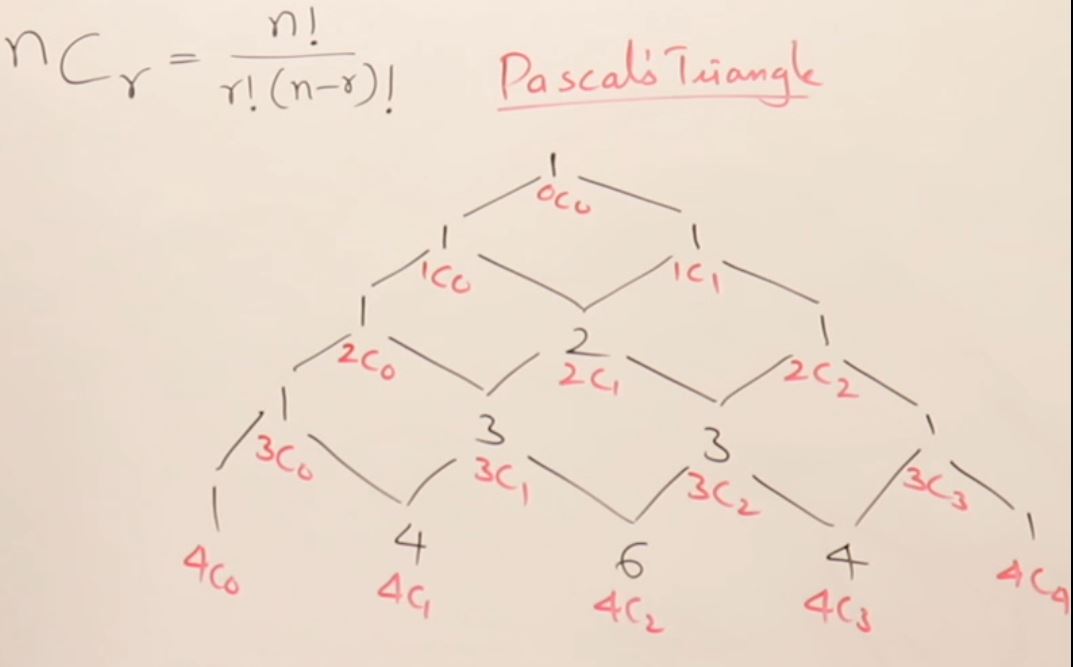 nCr = n! / r!(n-r)!
Pascal's Triangle
1
0C0
1 1
1C0 1C1
1 2 1
2C0 2C1 2C2
1 3 3 1
3C0 3C1 3C2 3C3
1 4 6 4 1
4C0 4C1 4C2 4C3 4C4